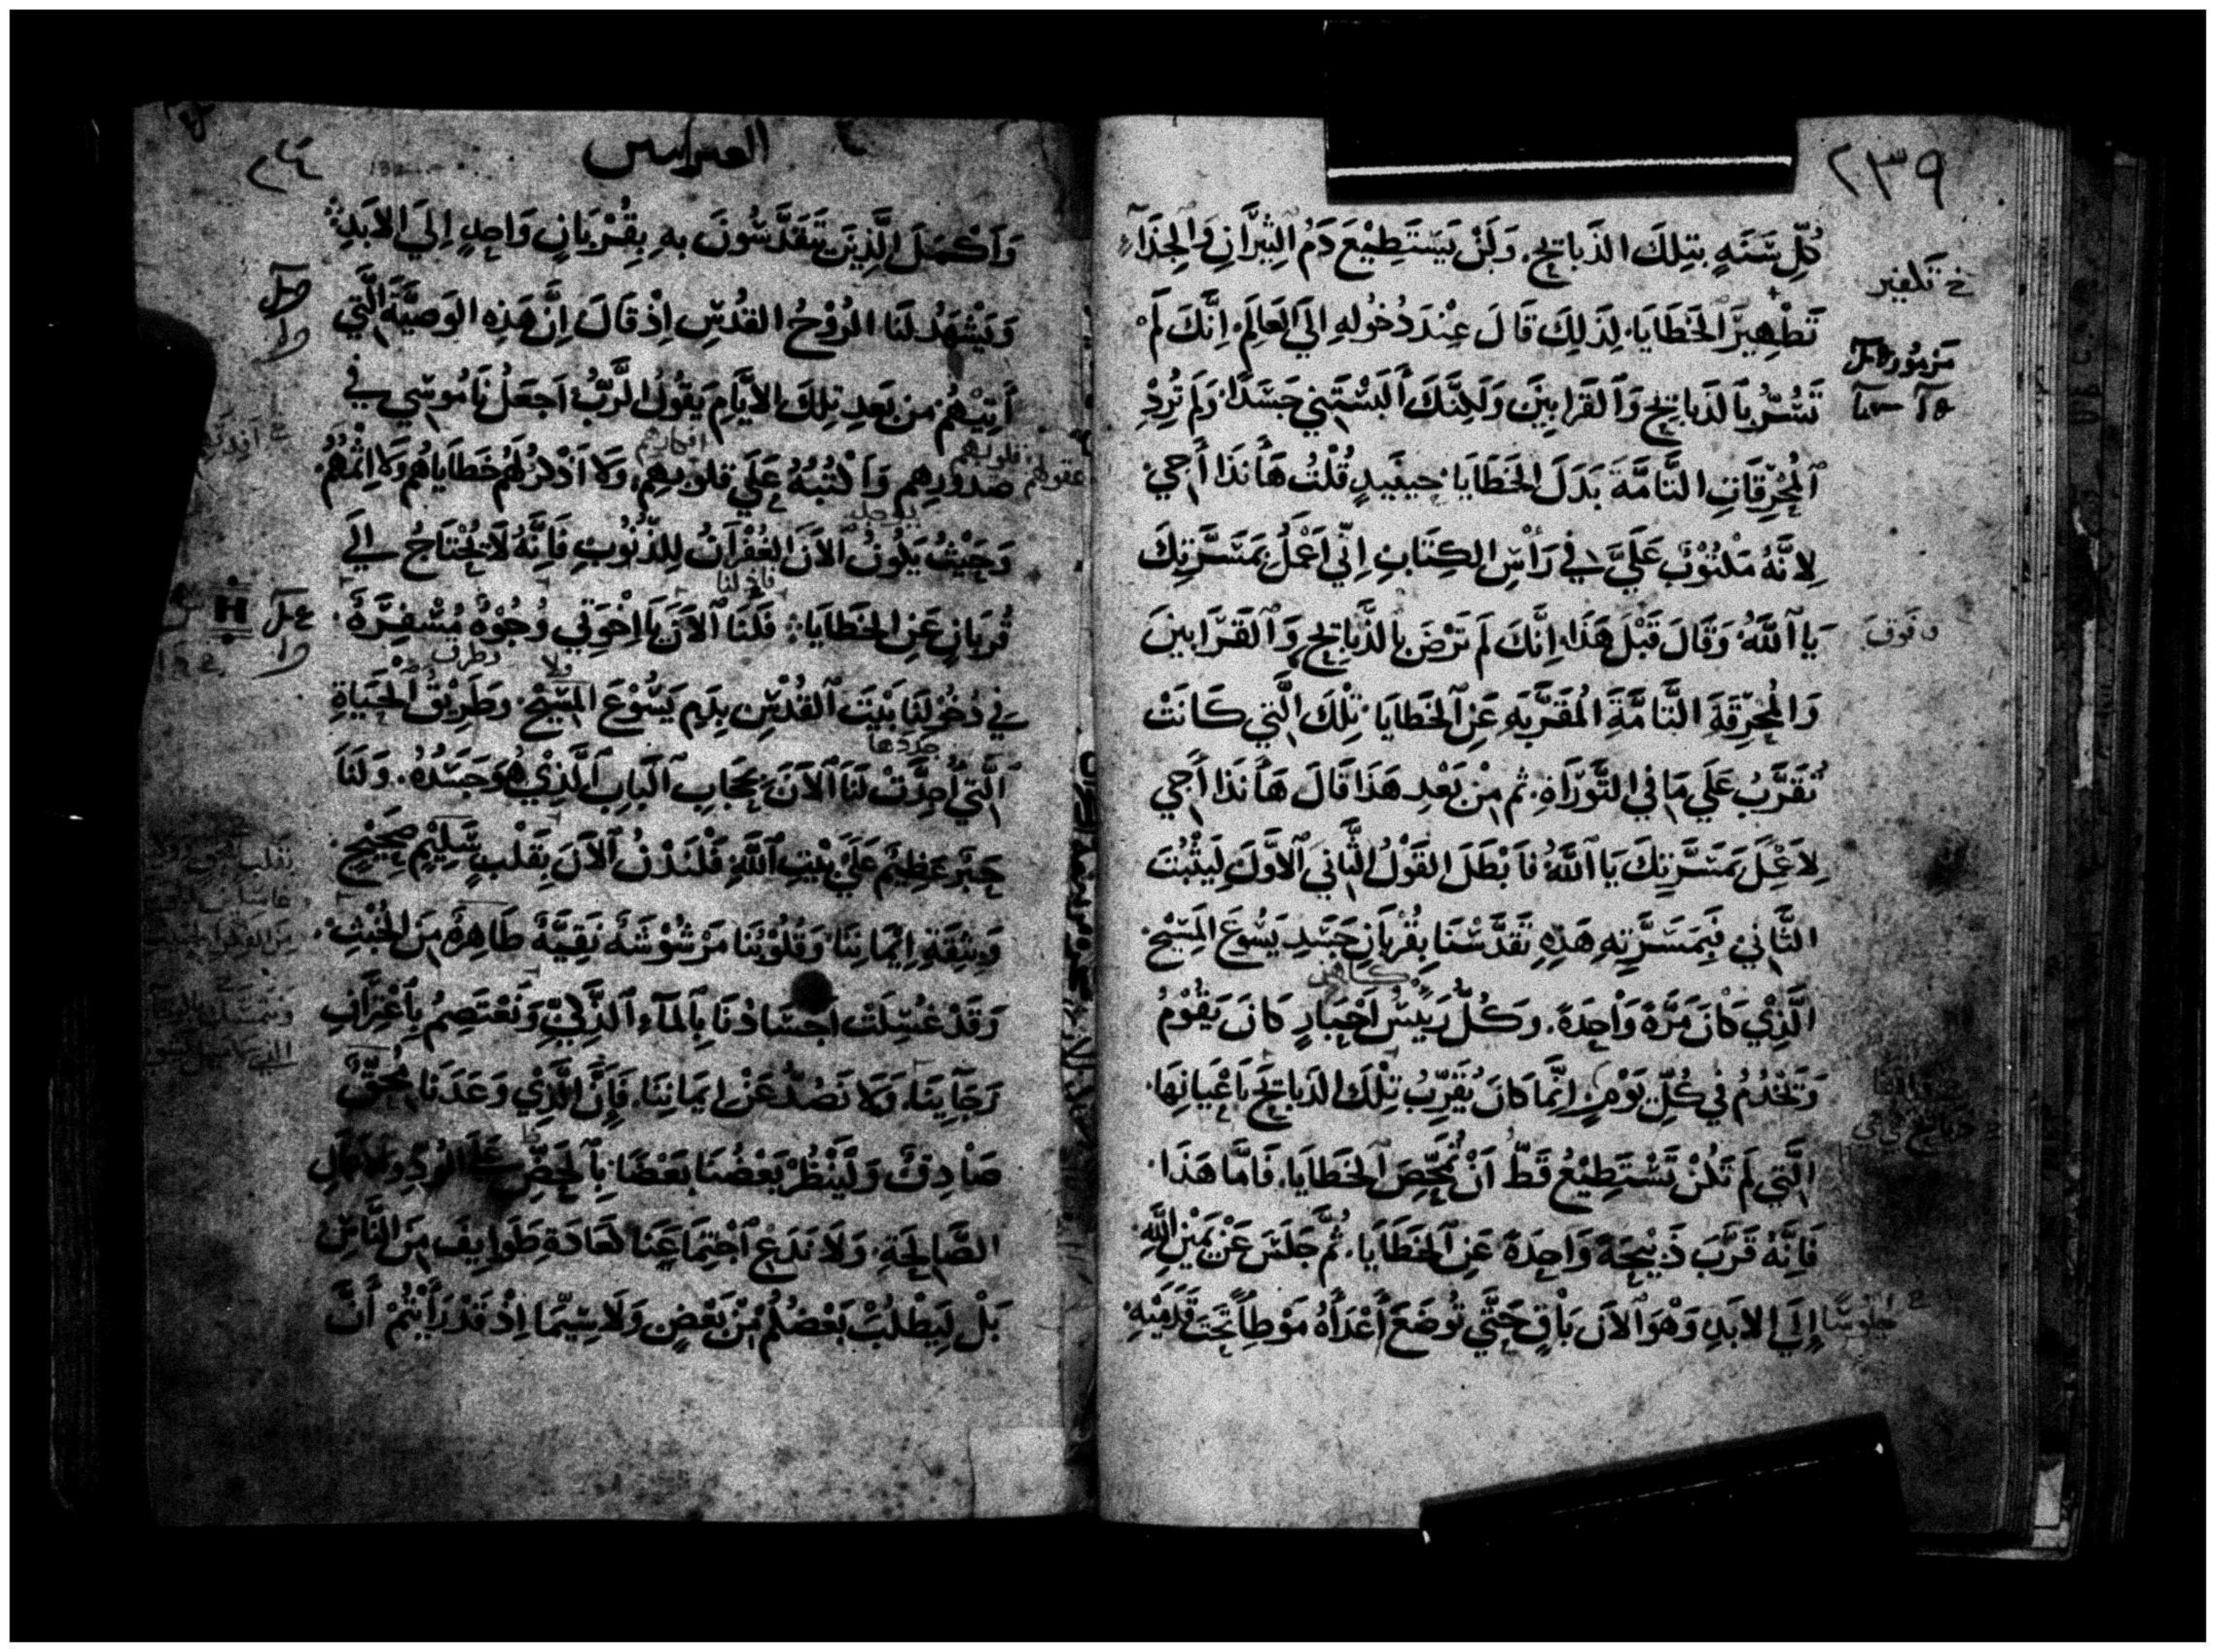 ٢٣٩
كُلِّ سَنَهٍ بتِلكَ الذَباتحِ. وَلَنْ يَسْتَطِيْعَ دَمُ الثِيْرَانِ وَالجِدَآءِ
خ تكفير
تَطْهِيرَ الخَطَايَا. لِذَلِكَ قَالَ عِنْدَ دُخُولِهِ الَي العَالِمَ. اِنَّكَ لَمْ
مَزمُور
تَسُرُّ بِالذَبَائحِ وَالقَرابِيَن وَلَكِنَّكَ أَلبَسْتَنِي جَسَدًا. وَلَم تُرِدْ
المُحْرِقَاتِ التَّامَّةَ بَدَلَ الخَطَايَا. حِينَيِيدٍ قُلْتُ هَأَنَذَا أَجِي
لِانَّهُ مَكْتُوْبٌ عَلَيَّ فِي رَأْسِ الكِتَابِ اِنِّي اَعْمَلُ بِمَسَرَّتِكَ
يَا اَللَّهُ. وَقَالَ قَبْلَ هَذَا. اِنَّكَ لَم تَرْضَ بِالذَّبَائِحِ وَالقَرَابِينَ
وفوق
وَالمُحْرِقَةَ التَّامَّةَ المُقَرَّبَهِ عَنِ الخَطَايَا. تِلْكَ الَّتِي كَانَتْ
تُقَرَّبُ عَلَي مَا فِي التَّوْرَاةِ. ثم مِنْ بَعْدِ هَذَا قَالَ هَأَنَذَا أَجِي
لِاَعْمَلَ بِمَسَرَّتِكَ يَا اَللَّهُ فاَبْطَلَ القَوْلُ الثَّانِي الاَوَّلَ لِيَثْبُتَ
الثَّانِي فَبِمَسَرَّتِهِ هَذِهِ تَقَدَّسْنَا بِقُرْبَانِ جَسَدِ يَسُوعَ المَسِيْح.
كاهن
الَّذِيْ كَانَ مَرَّةً وَاْحِدَةً. وَكُلُّ رَييْسُ اَحْبَارٍ كَانَ يَقُوْمُ
وَيَخْدُمُ فِي كُلِّ يَوْمٍ اِنَّمَا كَانَ يُقَرِّبُ تِلْكَ الذَبَائِحَ بَاعْيَانِهَا.
الَّتِي لَم تَكُنْ تَسْتَطِيْعُ قَطُّ اَنْ تُمَحِّصَ الخَطَايَا. فَامَّا هَذَا.
فَاِنَّهُ قَرَّبَ ذَبِيْحَةً وَاحِدَةً عَنِ الخَطَايَا. ثُمَّ جَلَسَ عَنْ يَمِيْنِ اللَّهِ
اِلَي الاَبَدِ وَهْوَ الاَنَ بَاْقٍ حَتَّي تُوضَعَ أَعْدَآهُ مَوْطِأً تَحتَ قَدَمَيْهِ.
خ جلوسًا
العبرانيين
وَاَكْمَلَ الَّذِيَن يَتَقَدَّسُونَ بهِ بِقُرْبَانٍ وَاحِدٍ اِلَي الاَبَدِ
وَيَشْهَدُ لَنا الرُوْحُ القدُسِ اِذْ قَالَ اِنَّ هَذِهِ الوَصِيَّةَ الَّتِي
أُتِيْهُم مِن بَعدِ تِلكَ الاَيَّامِ يَقُولُ الرَّبُّ اَجعَلُ نَامُوسِي فِي
قلوبهم افكارهم
عقولهم
صُدُورِهِم وَاَكْتُبُهُ عَلَي قلوبِهِم. وَلا اَذْكرُ لَهُم خَطَايَاهُم وَلا اِثْمَهُم.
وَحَيْثُ يَكُونُ الاَنَ الغُفْرَانُ لِلذُنُوبِ فَاِنَّهُ لاَ يُحْتَاجُ اِلَي
قُربَانٍ عَنِ الخَطَايَا. فَلَنَا الاَنَ يَا اِخْوَتِي وُجُوْهٌ مُسْفِرَةٌ.
فِي دُخُولِنَا بَيْتَ القُدْسِ بِدَمِ يَسُوْعَ المَسِيْحِ. وَطَرِيْقُ الحَيَاةِ
جددها
الَّتِي اُحِدَّتْ لَنَا الاَنَ بِحِجَابِ البَابِ الَّذِيْ هُوَ جَسَدُهُ. وَلَنَا
حَبْر عَظِيم عَلَيَ بَيْتِ اللَّهِ فَلْنَدْنُ الاَنَ بِقَلْبٍ سَلِيْمٍ صَحِيْحٍ.
وَبِثِقَةِ اِيمَانِنَا وَقُلُوْبُنَا مَرْشُوْشَةً نَقِيَّةً طَاهِرَةً مِنَ الخُبْثِ.
وَقَدْ غُسِلَتْ اَجسَادُنَا بِالمَاءِ الذَّكِيِّ وَنَعْتَصِمُ بِاعْتِرَافِ
رَجَآيِنَا. وَلا نَصُدُّ عَنْ ايمَانِنَا. فَاِنَّ الَّذِيْ وَعَدَنَا مُحِقٌّ
صَادِقٌ وَلْيَنْظُرْ بَعْضُنَا بَعْضًا بِالحَضِّ عَلَي الوُدِّ وَالاَعْمَالِ
الصَّالِحَةِ. وَلاَ نَدَعُ اجْتِمَاعَنَا كَعَادَةِ طَوايِفَ مِنَ النَّاسِ
بَلْ لِيَطْلُبْ بَعْضُكُم مِنْ بَعْضٍ وَلَاسِيّمَا اِذْ قَدْ رَأَيْتُمْ أَنَّ